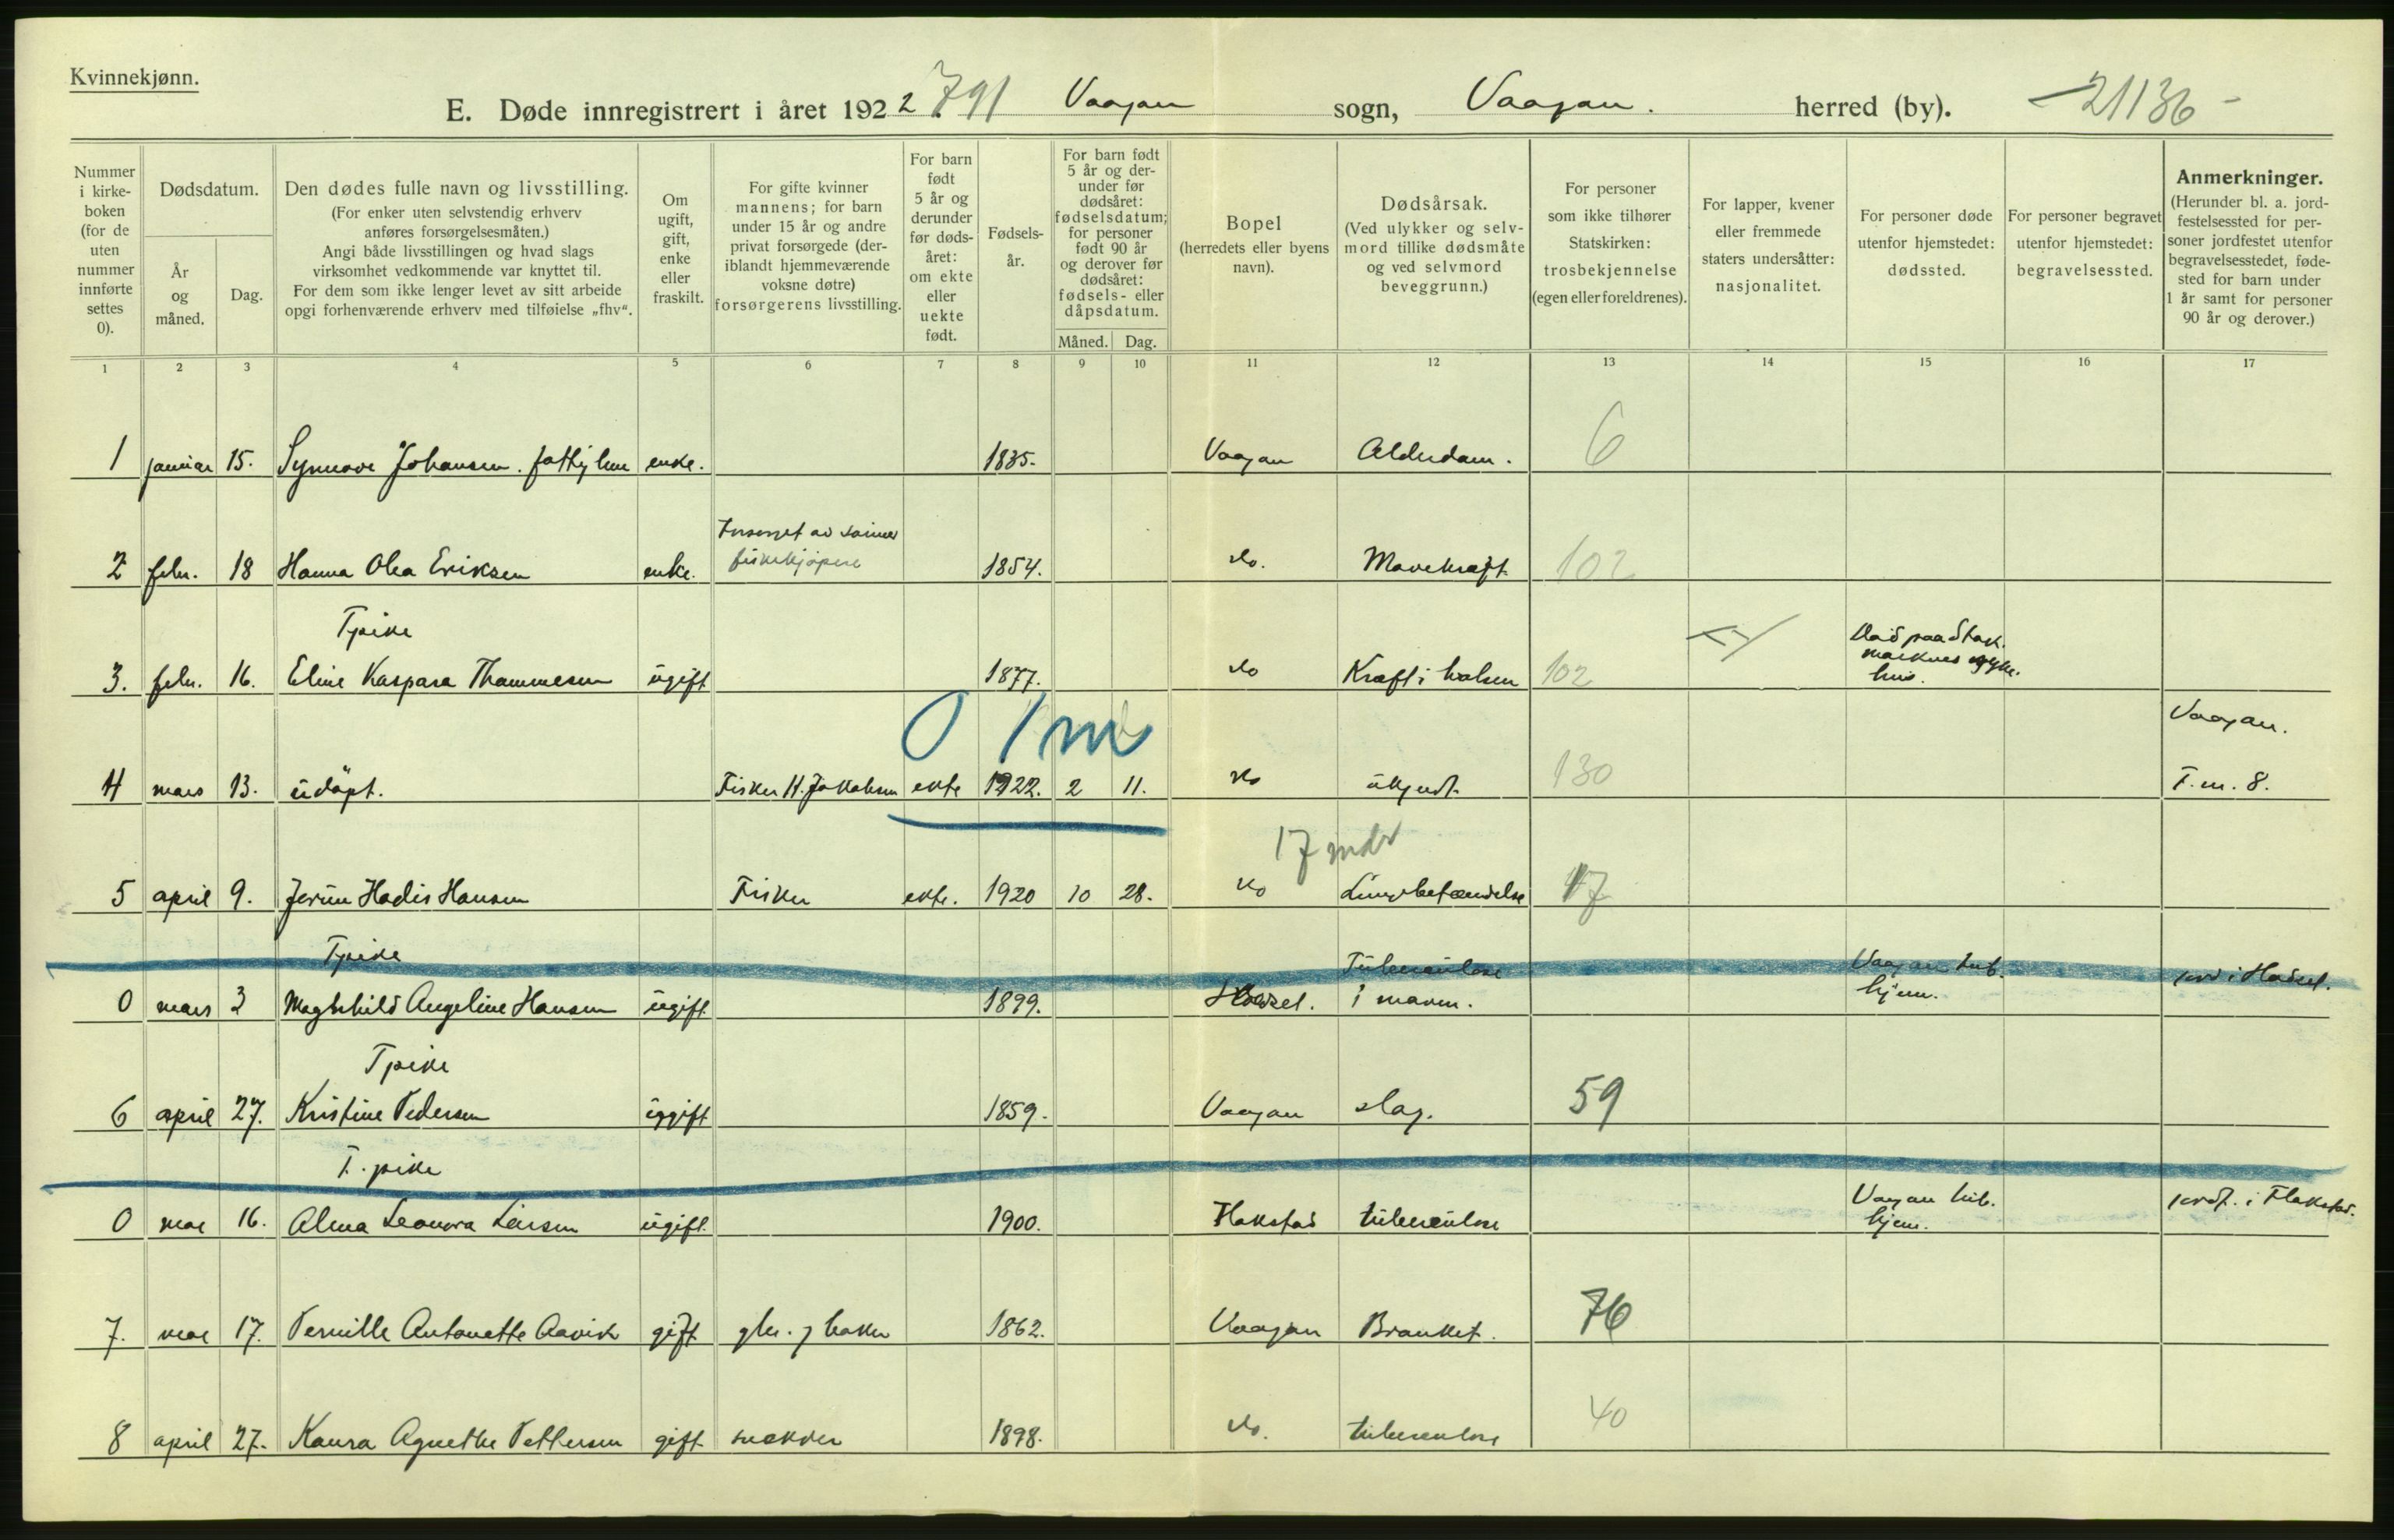 Kvinnekjønn.
E. Døde innregistrert i året 1922 791 Vaagan sogn, Vaagan. herred (by). -21136-
Nummer i kirkeboken (for de uten nummer innførte settes 0).
Dødsdatum.
År og måned.
Dag.
Den dødes fulle navn og livsstilling.
(For enker uten selvstendig erhverv anføres forsørgelsesmåten.)
Angi både livsstillingen og hvad slags virksomhet vedkommende var knyttet til.
For dem som ikke lenger levet av sitt arbeide opgi forhenværende erhverv med tilføielse „fhv“.
Om ugift, gift, enke eller fraskilt.
For gifte kvinner mannens; for barn under 15 år og andre privat forsørgede (deriblandt hjemmeværende voksne døtre) forsørgerens livsstilling.
For barn født 5 år og derunder før dødsåret: om ekte eller uekte født.
Fødselsår.
For barn født 5 år og derunder før dødsåret: fødselsdatum; for personer født 90 år og derover før dødsåret: fødsels- eller dåpsdatum.
Måned. Dag.
Bopel (herredets eller byens navn).
Dødsårsak. (Ved ulykker og selvmord tillike dødsmåte og ved selvmord beveggrunn.)
For personer som ikke tilhører Statskirken: trosbekjennelse (egen eller foreldrenes).
For lapper, kvener eller fremmede staters undersåtter: nasjonalitet.
For personer døde utenfor hjemstedet: dødssted.
For personer begravet utenfor hjemstedet: begravelsessted.
Anmerkninger. (Herunder bl. a. jordfestelsessted for personer jordfestet utenfor begravelsesstedet, fødested for barn under 1 år samt for personer 90 år og derover.)
1 2 3 4 5 6 7 8 9 10 11 12 13 14 15 16 17
1 januar 15. Synnove Johansen. fattiglem enke. 1835. Vaagan Alderdom. 6
Forsørget av sønner
fiskekjøpere
2 febr. 18 Hanna Olea Eriksen enke. 1854. do. Mavekræft 102
Tpike
3. febr. 16. Eline Kaspara Thommesen ugift 1877. do Kræft i halsen 102
Død paa Stok.
marknes syke.
hus.
0 1 m
Vaagan.
4 mars 13. udöpt. Fisker H. Jakobsen ekte 1922. 2 11. do ukjendt 130 F.m. 8.
17 mdr
5 april 9. Hansen Fisker ekte. 1920 10 28. do Lungebetændelse 17
Tpike
Tuberculose
Vaagan tub.
hjem.
jord i Hadsel.
0 mars 3 Maghild Angeline Hansen ugift 1899. Hadsel. i maven.
Tpike
6 april 27. Kristine Pedersen ugift 1859. Vaagan slag. 59
T. pike
Vaagan tub.
hjem.
jordf. i Flakstad.
0 mai 16. Alma Leonora Larsen ugift. 1900. Flakstad tuberculose
7. mai 17. Pernille Antonette Aavik gift 1862. Vaagan Bronkit. 76
8 april 27. Agnethe Pettersen gift snekker 1898. do. tuberculose 40